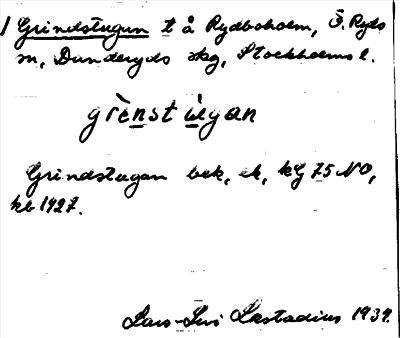 1 Grindstugan t å Rydboholm, Ö. Ryds
sn, Danderyds skg, Stockholms l.
grènst ùgan
Grindstugan bek, ek, kG 75 NO,
kb 1927.
Lars-Levi Læstadius 1939.